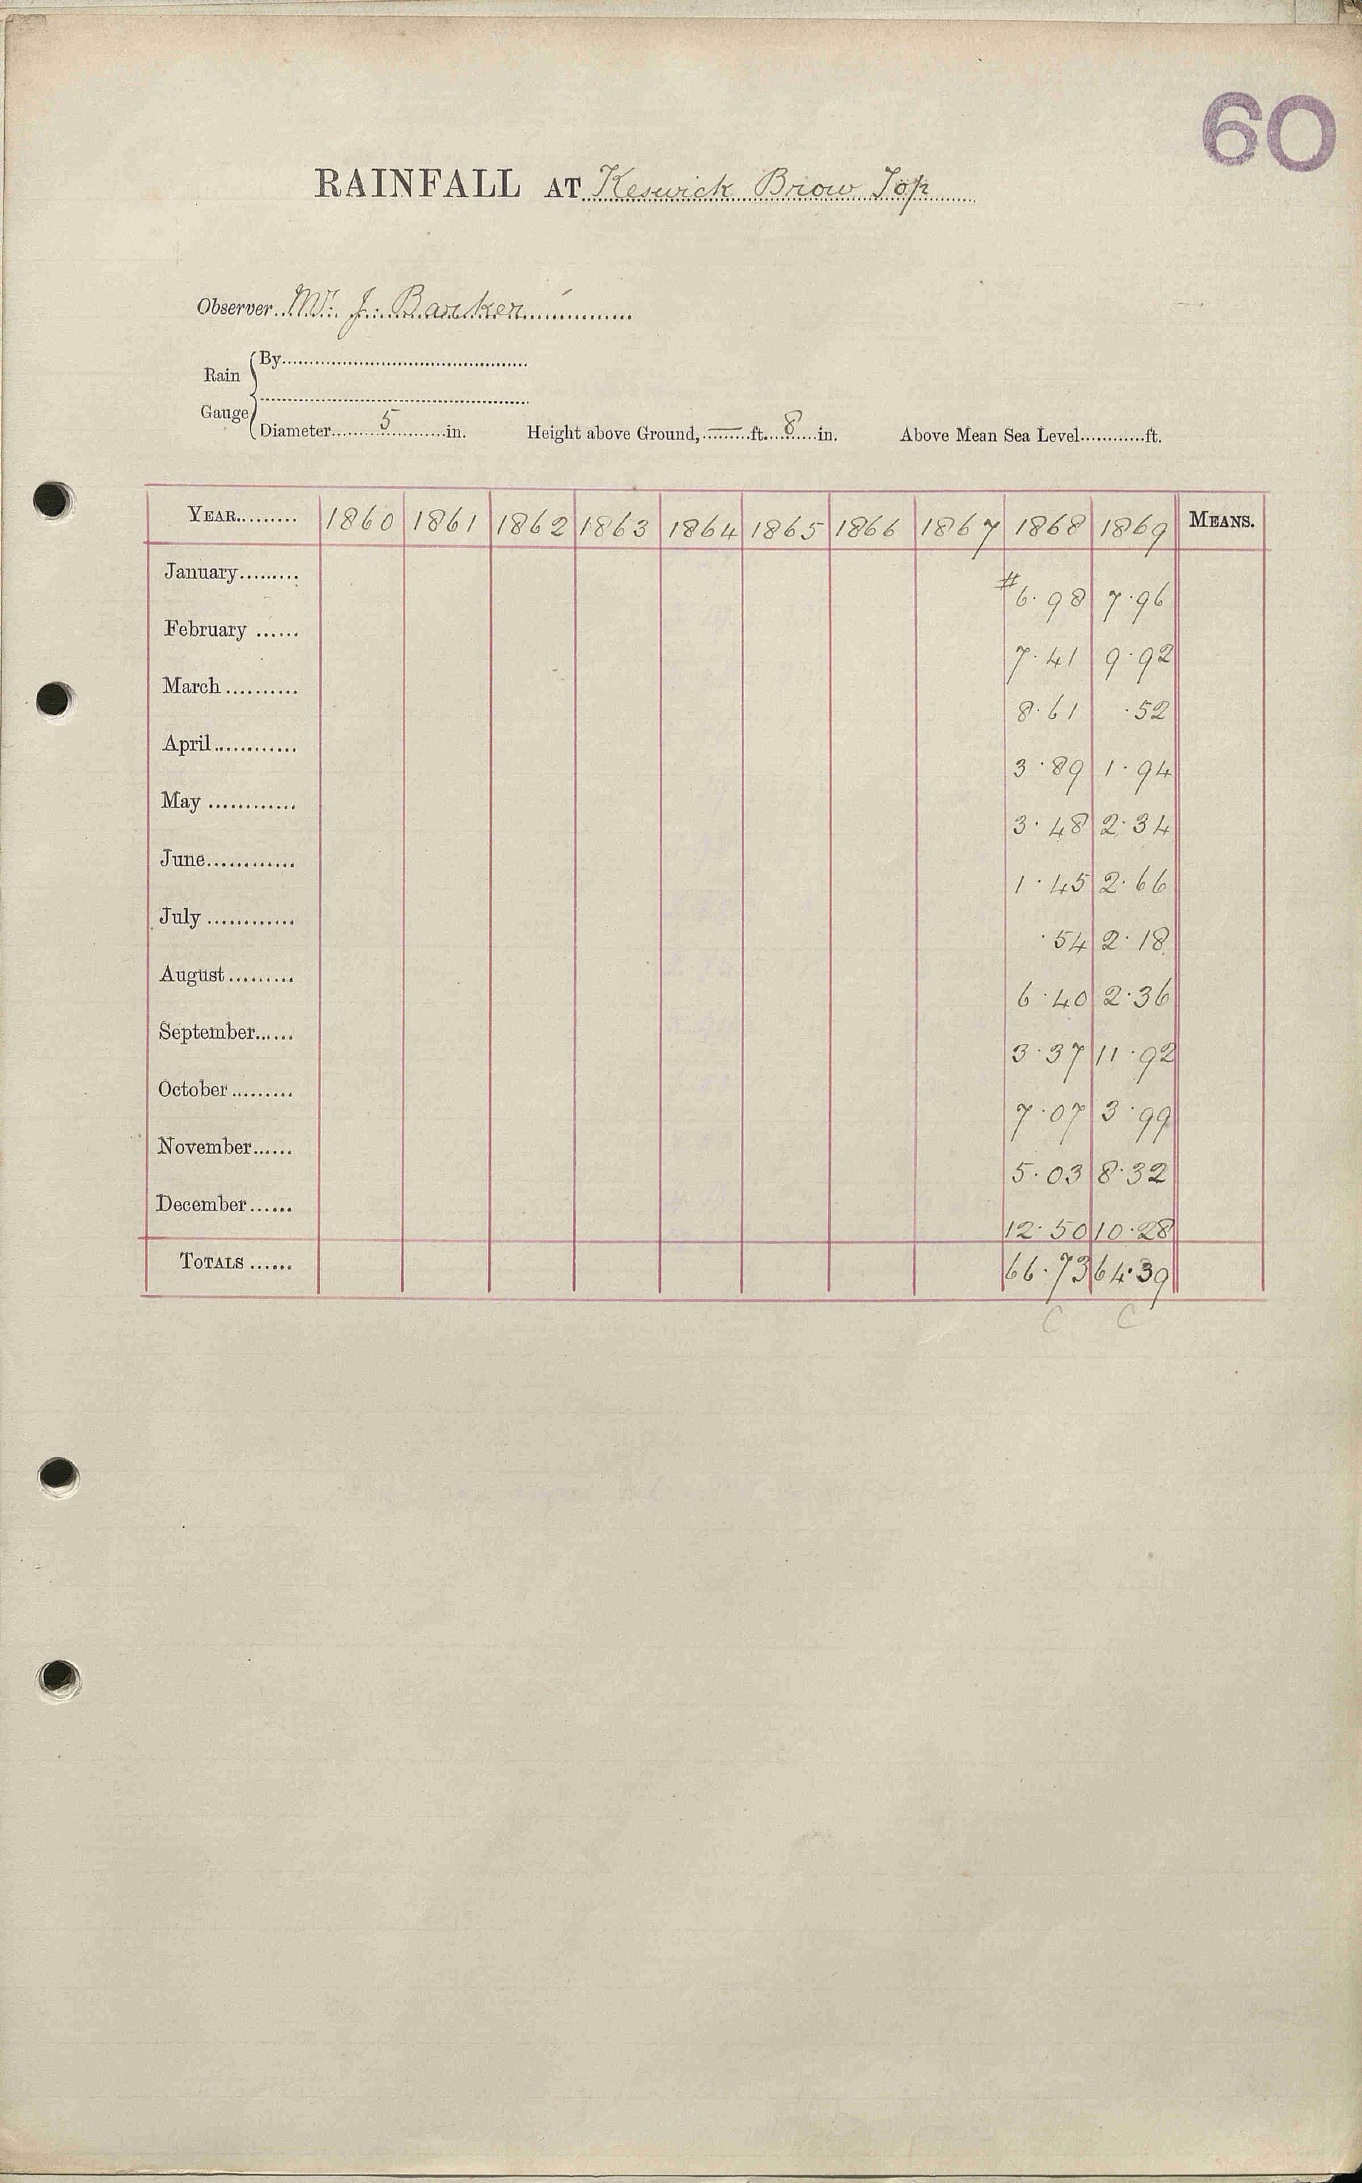 60
RAINFALL AT Keswick Brow Top
Observer Mr. J. Banker
Rain Gauge
By
Diameter 5 in. Height above Ground, — ft. 8 in. Above Mean Sea Level ft.
YEAR 1860 1861 1862 1863 1864 1865 1866 1867 1868 1869 MEANS.
January #6.98 7.96
February 7.41 9.92
March 8.61 .52
April 3.89 1.94
May 3.48 2.34
June 1.45 2.66
July .54 2.18
August 6.40 2.36
September 3.37 11.92
October 7.07 3.99
November 5.03 8.32
December 12.50 10.28
TOTALS 66.73 64.39
C C